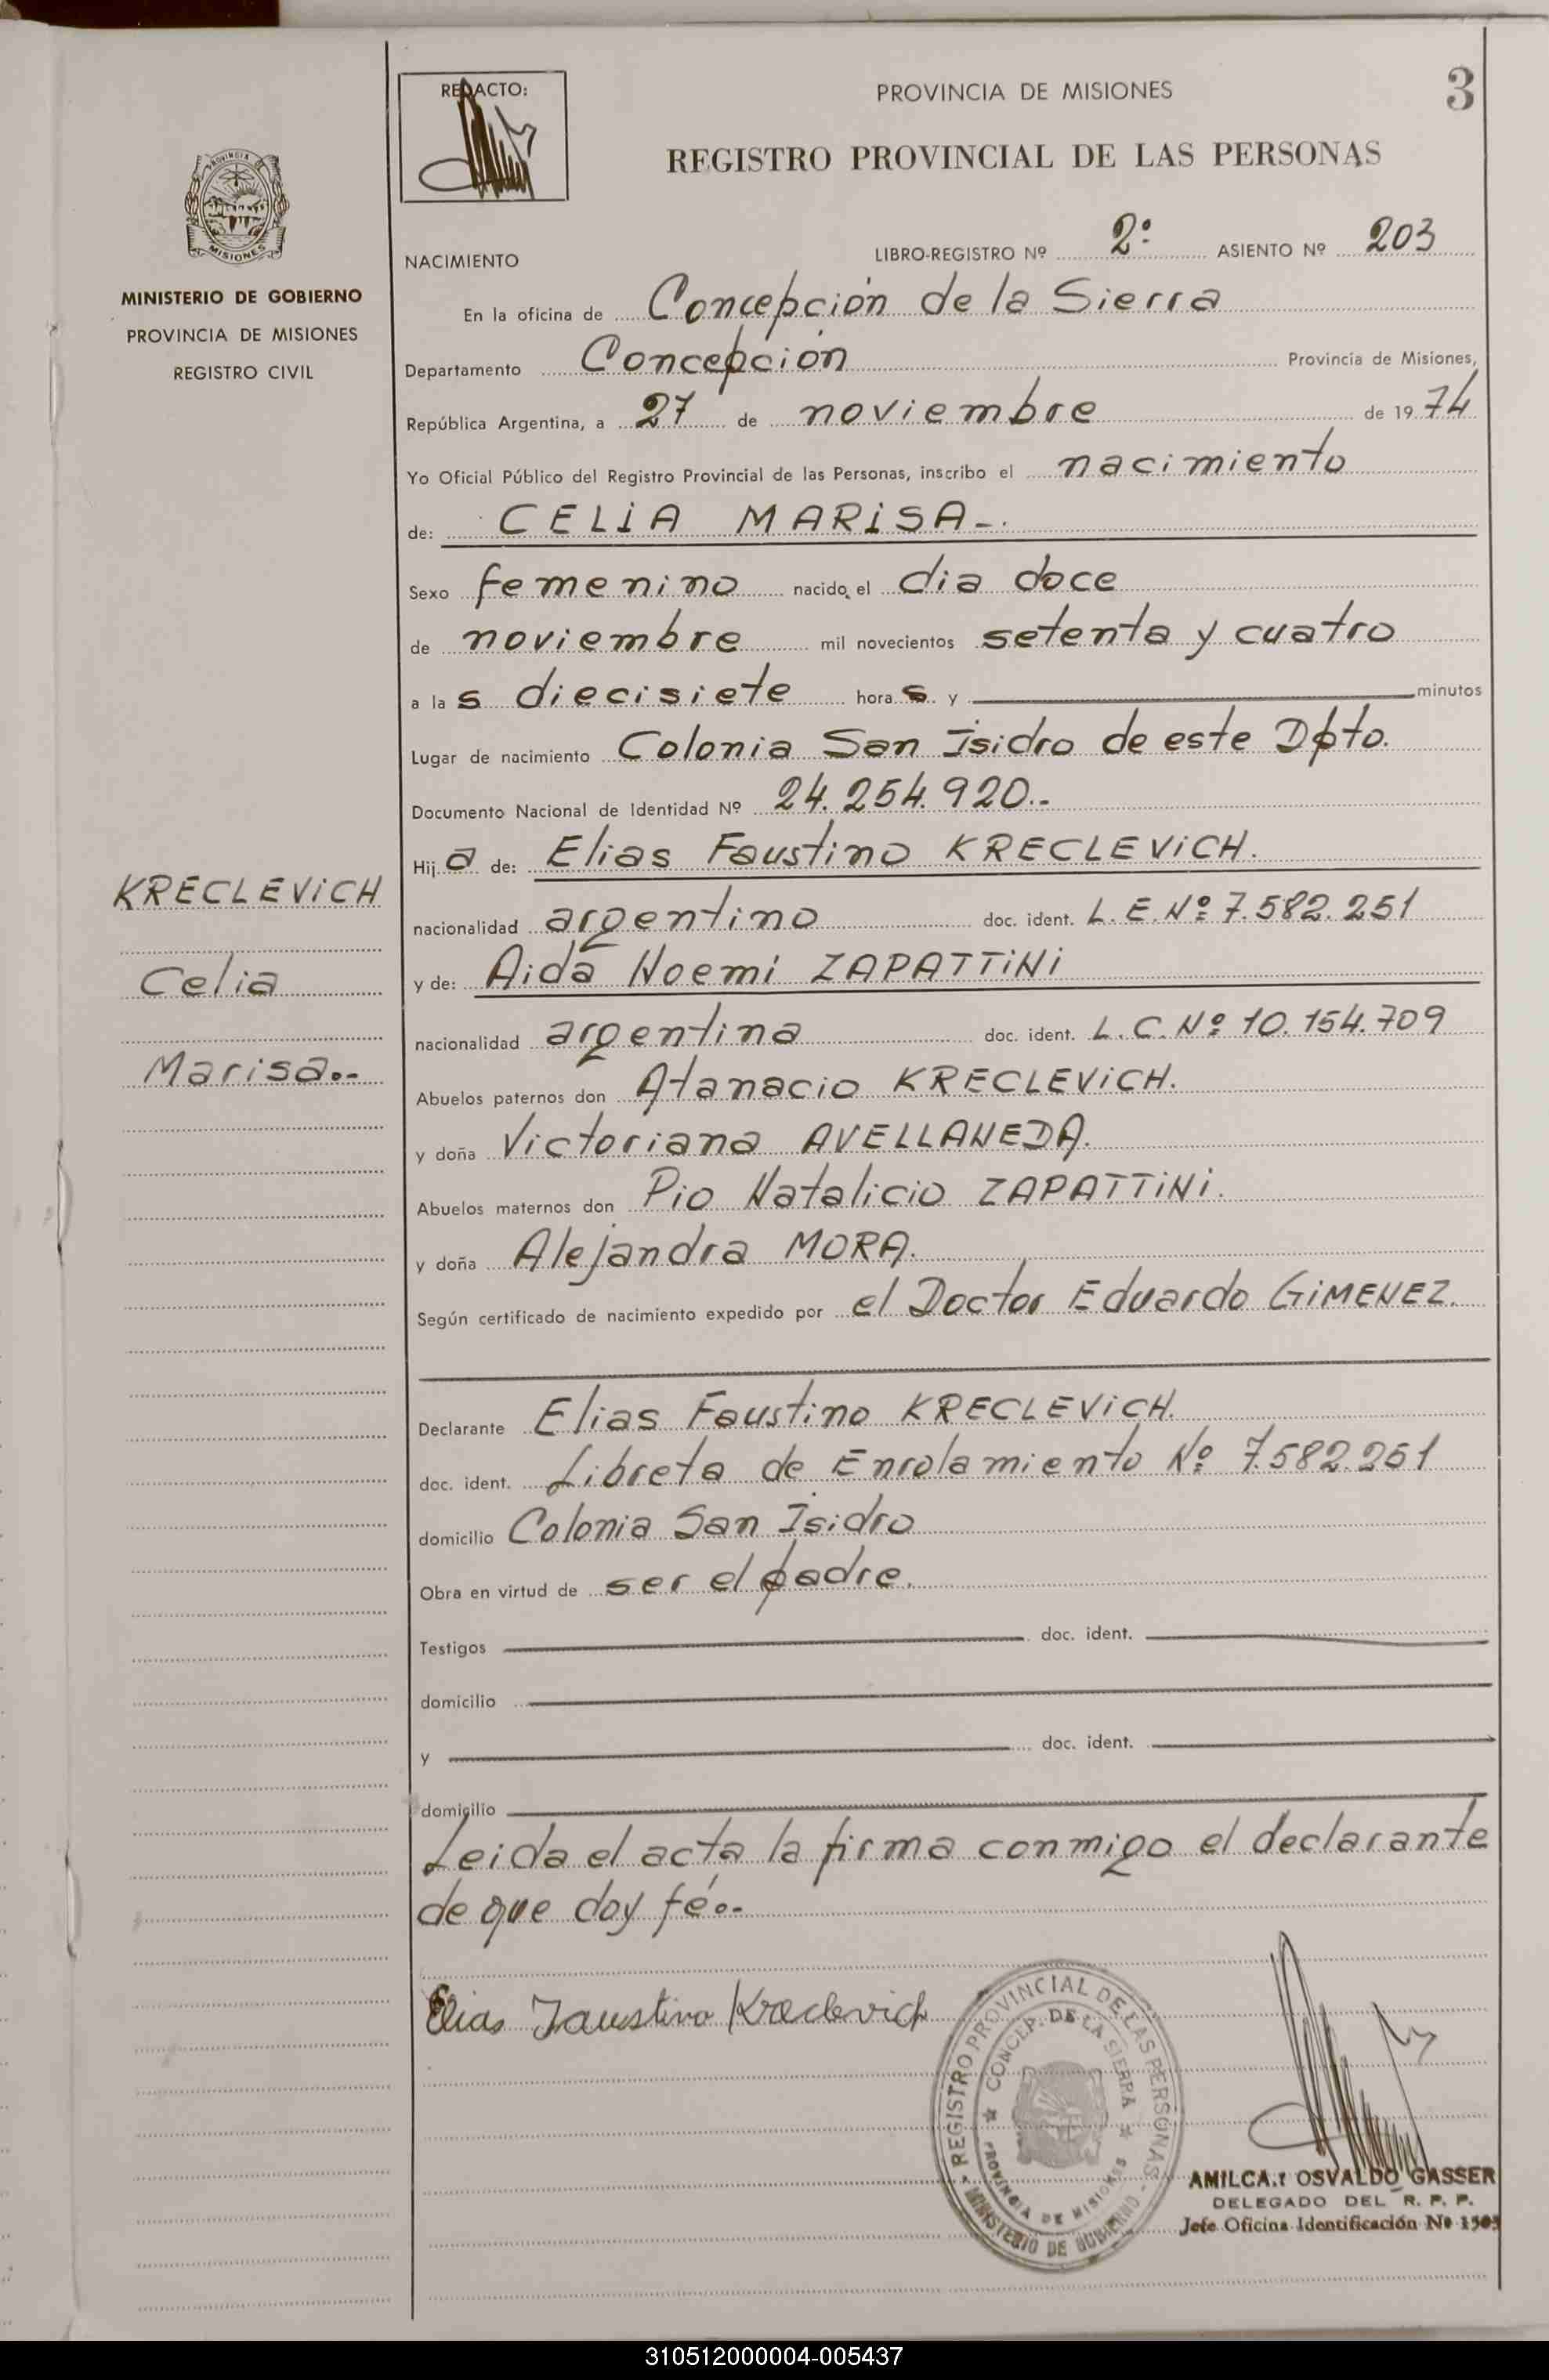 REDACTO:
PROVINCIA DE MISIONES
3
REGISTRO PROVINCIAL DE LAS PERSONAS
PROVINCIA DE
MISIONES
MINISTERIO DE GOBIERNO
PROVINCIA DE MISIONES
REGISTRO CIVIL
NACIMIENTO
LIBRO-REGISTRO Nº 2º ASIENTO Nº 203
En la oficina de Concepción de la Sierra
Departamento Concepción Provincia de Misiones,
República Argentina, a 27 de noviembre de 1974
Yo Oficial Público del Registro Provincial de las Personas, inscribo el nacimiento
de: CELIA MARISA-.
Sexo femenino nacido el dia doce
de noviembre mil novecientos setenta y cuatro
a las diecisiete horas y minutos
Lugar de nacimiento Colonia San Isidro de este Dpto.
Documento Nacional de Identidad Nº 24.254.920.-
Hija de: Elias Faustino KRECLEVICH.
nacionalidad argentino doc. ident. L.E.Nº 7.582.251
y de: Aida Noemi ZAPATTINI
nacionalidad argentina doc. ident. L.C.Nº 10.154.709
Abuelos paternos don Atanacio KRECLEVICH.
y doña Victoriana AVELLANEDA.
Abuelos maternos don Pio Natalicio ZAPATTINI.
y doña Alejandra MORA.
Según certificado de nacimiento expedido por el Doctor Eduardo GIMENEZ.
KRECLEVICH
Celia
Marisa.-
Declarante Elias Faustino KRECLEVICH.
doc. ident. Libreta de Enrolamiento Nº 7.582.251
domicilio Colonia San Isidro
Obra en virtud de ser el padre.
Testigos doc. ident.
domicilio
y doc. ident.
domicilio
Leida el acta la firma conmigo el declarante
de que doy fé.-
Elias Faustino Kreclevich
REGISTRO PROVINCIAL DE LAS PERSONAS
MINISTERIO DE GOBIERNO
CONCEP. DE LA SIERRA
PROVINCIA DE MISIONES
AMILCAR OSVALDO GASSER
DELEGADO DEL R. P. P.
Jefe Oficina Identificación Nº 1505
310512000004-005437